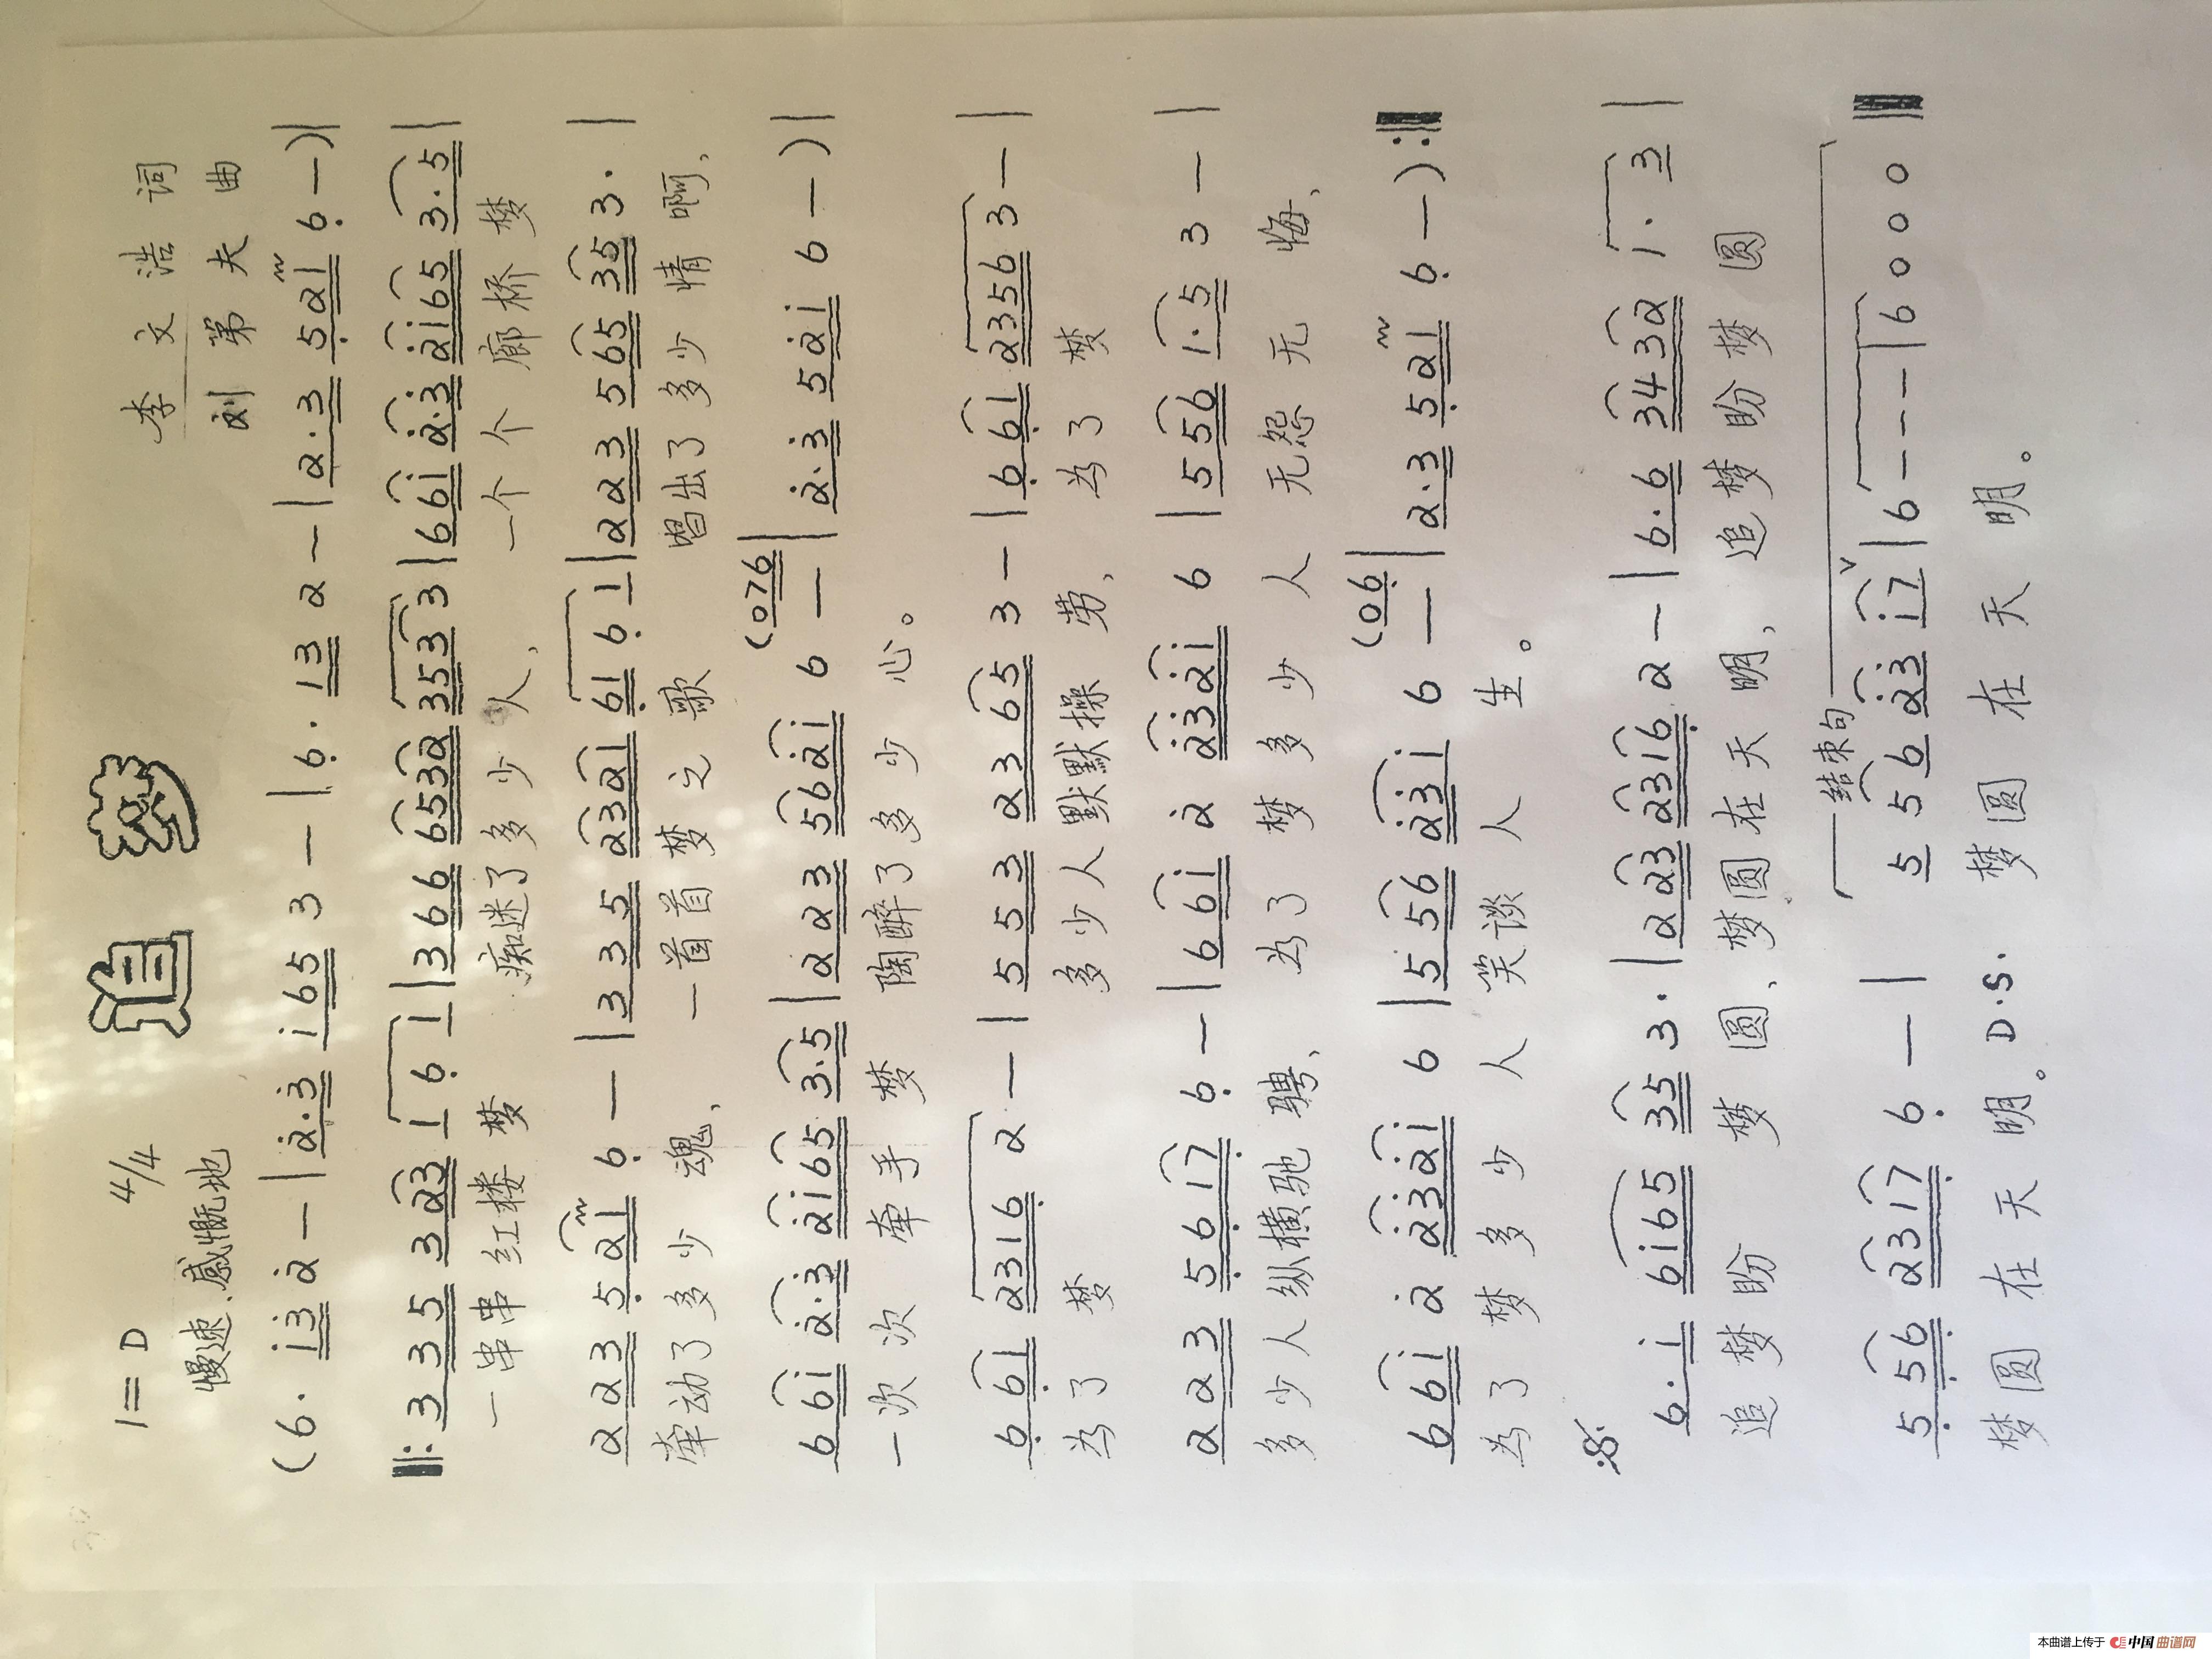 追梦
1=D 4/4
李文浩 词
慢速、感慨地
刘第夫 曲
(6· i̇3̇ 2̇ — | 2̇·3̇ i̇65 3 — | 6̣· 13 2 — | 2·3 5̣21 6̣ — ) |
‖: 3 35 3 23 1 6̣ 1 | 3 66 6532 353 3 | 6 6i̇ 2̇·3̇ 2̇i̇65 3·5 |
一串串红楼梦 痴迷了多少人, 一个个廊桥梦
2 23 5̣21 6̣ — | 3 35 2321 6̣1 6̣ 1 | 2 23 565 35 3· |
牵动了多少魂, 一首首梦之歌 唱出了多少情啊,
(076
6 6i̇ 2̇·3̇ 2̇i̇65 3·5 | 2 23 562̇i̇ 6 — | 2̇·3̇ 52̇i̇ 6 — ) |
一次次牵手梦 陶醉了多少心。
6̣ 6̣1 2316̣ 2 — | 5 53 23 65 3 — | 6̣ 6̣1 2356 3 — |
为了梦 多少人默默操劳, 为了梦
2 23 5̣6̣ 17̣ 6̣ — | 6 6i̇ 2̇ 2̇3̇2̇i̇ 6 | 5 56 1·5 3 — |
多少人纵横驰骋、 为了梦多少人 无怨无悔、
(06
6 6i̇ 2̇ 2̇3̇2̇i̇ 6 | 5 56 2̇3̇i̇ 6 — | 2·3 5̣21 6̣ — ) :‖
为了梦多少人 笑谈人生。
6·i̇ 6i̇65 35 3· | 2 23 2316̣ 2 — | 6·6 3432 1·3 |
追梦盼梦圆、梦圆在天明, 追梦盼梦圆
结束句
5̣ 5̣6̣ 2317̣ 6̣ — | 5 56 2̇3̇ i̇7 | 6 — — — | 6 0 0 0 ‖
梦圆在天明。 D.S. 梦圆在天明。
本曲谱上传于 中国曲谱网